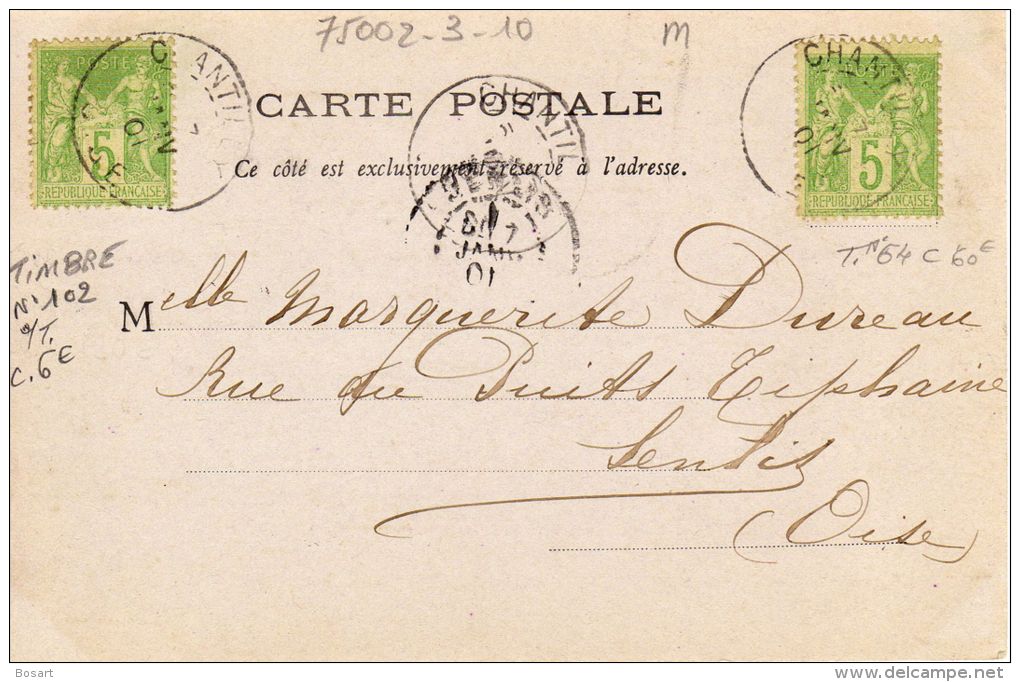 75002-3-10 m
POSTE
5
REPUBLIQUE FRANÇAISE
CHANTILLY
JANV
01
OISE
CARTE POSTALE
Ce côté est exclusivement réservé à l'adresse.
CHANTIL
SENLIS
7
JANV.
01
POSTE
5
REPUBLIQUE FRANÇAISE
CHANTIL
7
JANV
01
TIMBRE
N°102
C.6E
T. N°64 C 60E
Melle Marguerite Dureau
Rue du Puits Tiphaine
Senlis
(Oise)
Bosart
delcampe.net